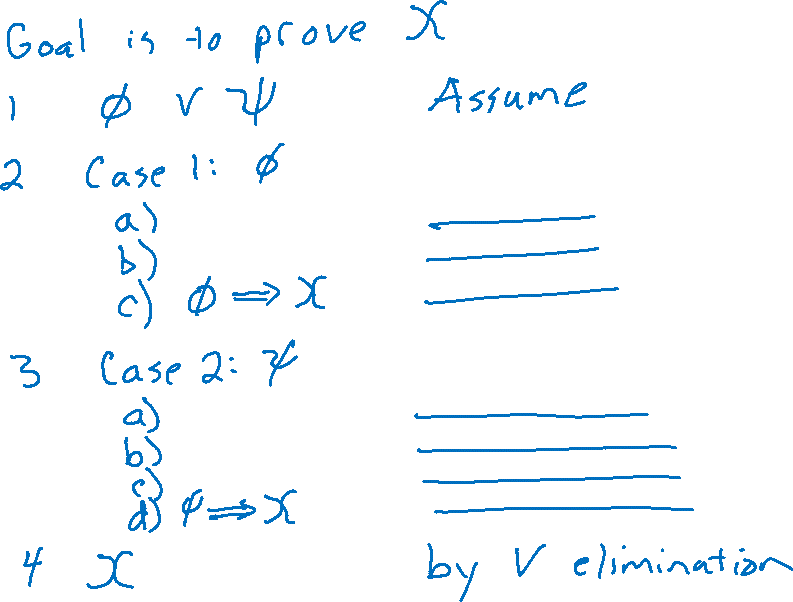 Goal is to prove χ
1 ϕ ∨ ψ Assume
2 Case 1: ϕ
a)
b)
c) ϕ ⟹ χ
3 Case 2: ψ
a)
b)
c)
d) ψ ⟹ χ
4 χ by ∨ elimination